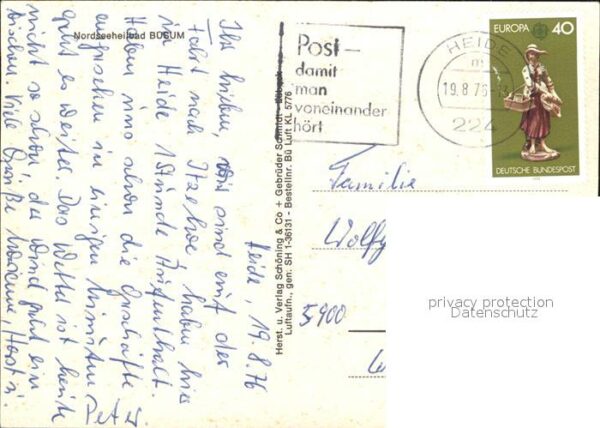 Nordseeheilbad BÜSUM
Heide, 19.8.76
Ihr Lieben, wir sind auf der
Fahrt nach Itzehoe, haben hier
in Heide 1 Stunde Aufenthalt.
Haben uns schon die Geschäfte
angesehen in einigen Minuten
geht es weiter. Das Wetter ist heute
nicht so schön, der Wind geht ein
bisschen. Viele Grüße Horst u.
Peter.
Herst. u. Verlag Schöning & Co + Gebrüder Schmidt
Luftaufn., gen: SH 1-36131 - Bestellnr. Bü Luft KL 5776
Post –
damit
man
voneinander
hört
HEIDE
m
19.8.76
224
EUROPA 40
DEUTSCHE BUNDESPOST
Familie
Wolfg
5900
privacy protection
Datenschutz